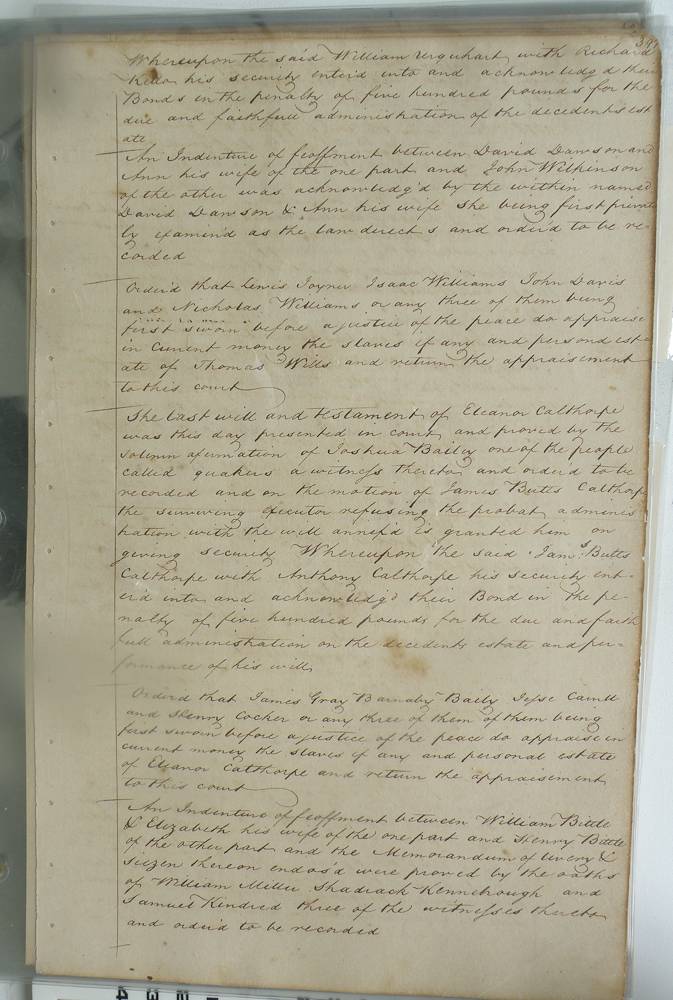 Whereupon the said William Urquhart with Richard
Kello his security enter'd into and acknowledg'd their
Bonds in the penalty of five hundred pounds for the
due and faithfull administration of the decedents est
ate
An Indenture of feoffment between David Dawson and
Ann his wife of the one part and John Wilkinson
of the other was acknowledg'd by the within named
David Dawson & Ann his wife she being first privat
ly examin'd as the law directs and order'd to be re-
corded
Order'd that Lewis Joyner Isaac Williams John Davis
and Nicholas Williams or any three of them being
first sworn before a justice of the peace do appraise
in Current money the slaves if any and personal est
ate of Thomas Wills and return the appraisement
to this court
The last will and testament of Eleanor Calthorpe
was this day presented in court and proved by the
solemn afirmation of Joshua Bailey one of the people
called quakers a witness thereto and order'd to be
recorded and on the motion of James Butts Calthorp
the surviving Executor refusing the probat adminis
tration with the will annex'd is granted him on
giving security Whereupon the said Jams Butts
Calthorpe with Anthony Calthorpe his security ent-
er'd into and acknowledg'd their Bond in the pe-
nalty of five hundred pounds for the due and faith
full administration on the decedents estate and per-
formance of his will
Order'd that James Gray Barnaby Baily Jesse
and Henry Cocker or any three of them of them being
first sworn before a justice of the peace do appraise in
current money the slaves if any and personal estate
of Eleanor Calthorpe and return the appraisement
to this court
An Indenture of feoffment between William Bittle
& Elizabeth his wife of the one part and Henry Bittle
of the other part and the Memorandum of livery &
seizen thereon endos'd were proved by the oaths
of William Miller Shadrack Kennebrough and
Samuel Kindred three of the witnesses thereto
and order'd to be recorded